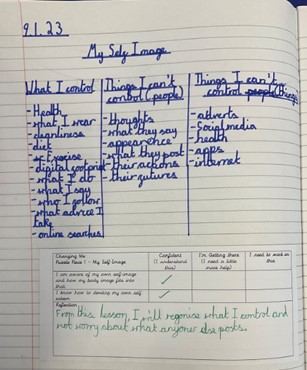 9.1.23
My Self Image
What I control
- Health
- what I wear
- cleanliness
- diet
- exercise
- digital footprint
- what I do
- what I say
- who I follow
- what advice I
take
- online searches
Things I can't
control (people)
- thoughts
- what they say
- appearence
- what they post
- their actions
- their futures
Things I can't
control people (things)
- adverts
- Social media
- health
- apps
- internet
Changing Me
Puzzle Piece 1 - My Self Image
Confident
(I understand
this)
I'm Getting There
(I need a little
more help)
I need to work on
this
I am aware of my own self-image
and how my body image fits into
that.
I know how to develop my own self
esteem.
Reflection
From this lesson, I will regonise what I control and
not worry about what anyone else posts.